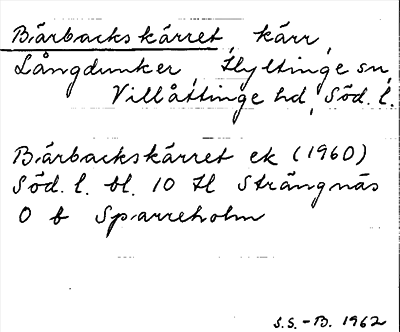 Bärbackskärret, kärr,
Långdunker, Hyltinge sn,
Villåttinge hd, Söd. l.
Bärbackskärret ek (1960)
Söd. l. bl. 10 H Strängnäs
O b Sparreholm
S.S. - B. 1962